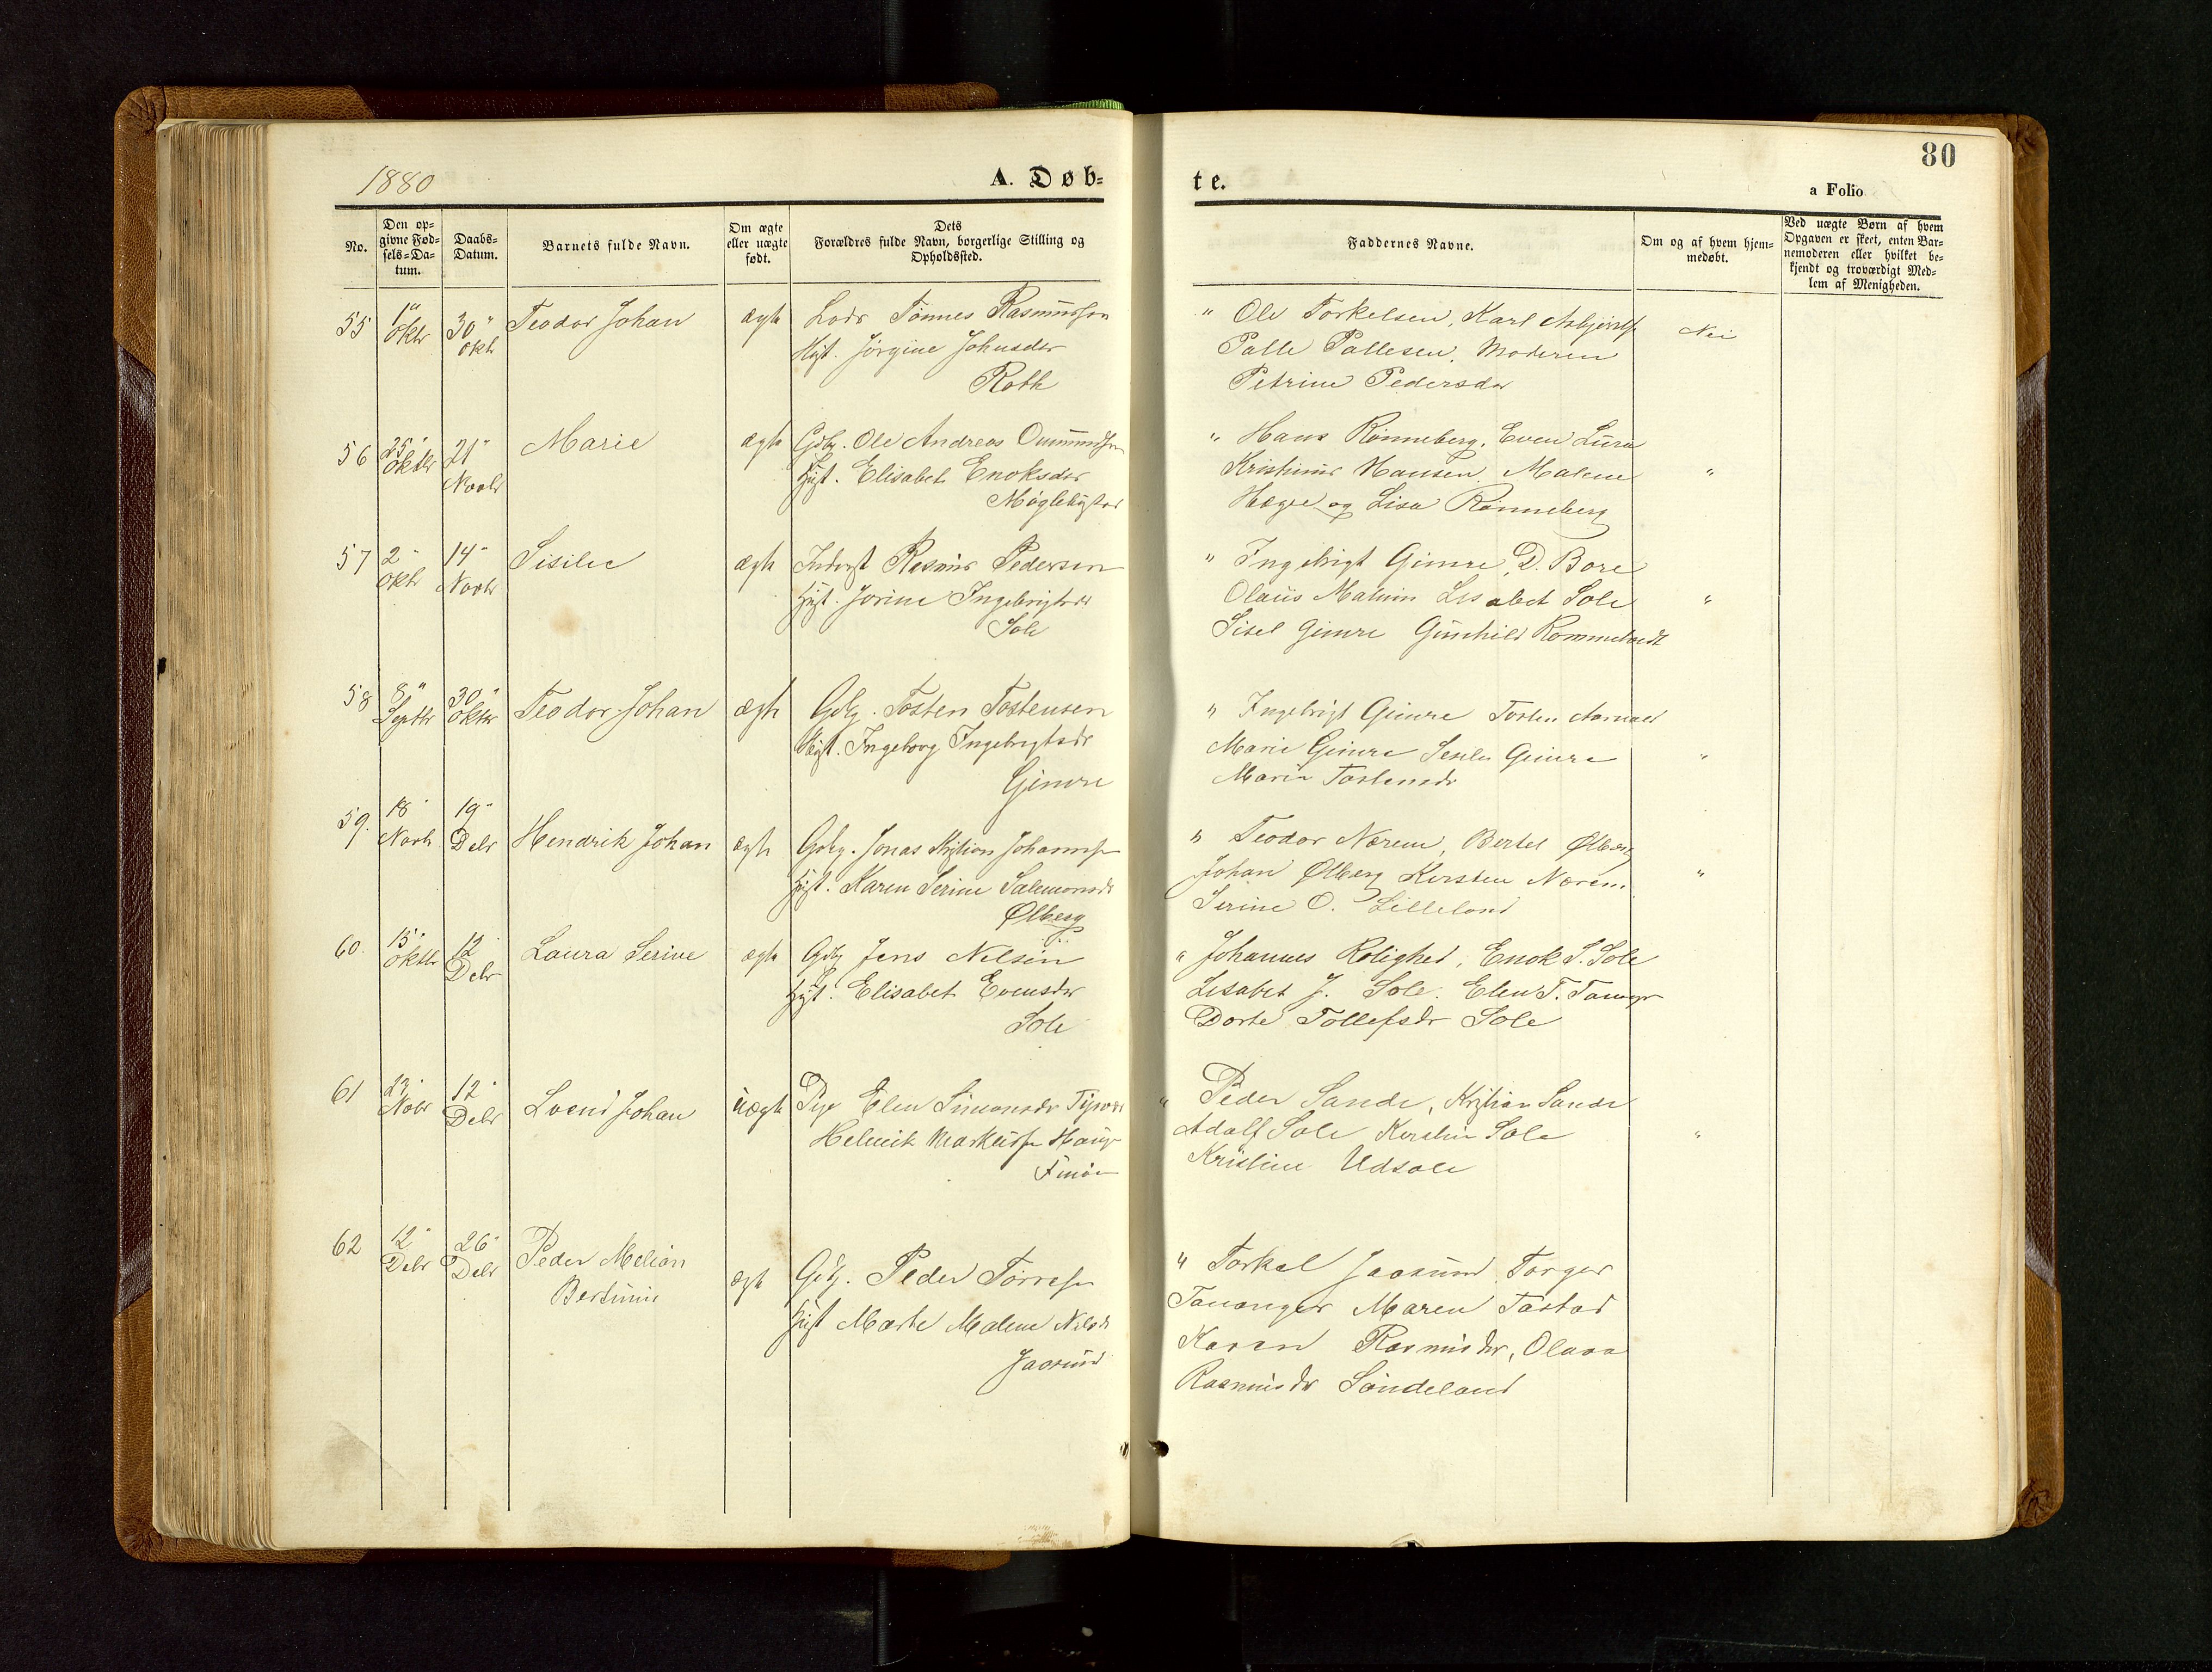 1880
A. Døb-
te.
80
a Folio
No.
Den op-
givne Fød-
sels-Da-
tum.
Daabs-
Datum.
Barnets fulde Navn.
Om ægte
eller uægte
født.
Dets
Forældres fulde Navn, borgerlige Stilling og
Opholdssted.
Faddernes Navne.
Om og af hvem hjem-
medøbt.
Ved uægte Børn af hvem
Opgaven er skeet, enten Bar-
nemoderen eller hvilket be-
kjendt og troværdigt Med-
lem af Menigheden.
55 1" Oktr 30" Oktr Teodor Johan ægte Lods Tønnes Rasmussen
Hst. Jørgine Johnsdr
Roth
" Ole Torkelsen, Karl Asbjørns
Palle Pallesen, Moderen
Petrine Pedersdr
Nei
56 25" Oktbr 21" Novbr Marie ægte Gdbg. Ole Andreas Ommundsen
Hst. Elisabet Enoksdr
Møglebystad
" Hans Rønneberg, Even Lura
Kristiane Hansen, Malene
Hægre og Lisa Rønneberg
"
57 2" Oktr 14" Novbr Sisilie ægte Inderst Rasmus Pedersen
Hst. Jorine Ingebrigtsdr
Sole
" Ingebrigt Gimre, D. Bore
Olaus Malmin Lisabet Sole
Sisel Gimre Gunhild Rommetvedt
"
58 8" Septbr 30" Oktbr Teodor Johan ægte Gdbg. Tosten Tostensen
Hst. Ingeborg Ingebrigtsdr
Gimre
" Ingebrigt Gimre Tosten
Marie Gimre Gimre
Maria Tostensdr
"
59. 18" Novbr 19" Debr Hendrik Johan ægte Gdbg. Jonas Kristian Johannes
Hst. Karen Serine Salemonsdr
Ølberg
" Teodor Nærem, Bertel Ølberg
Johan Ølberg Kirsten Nærem
Serine O. Lilleland
"
60. 15" Oktbr 12" Debr Laura Serine ægte Gdbg Jens Nilsen
Hst. Elisabet Evensdr
Sole
" Johannes Rolighed, Enok S. Sole
Lisabet J. Sole. Elen T. Tananger
Dorte Tollefsdr Sole
61 23" Nobr 12" Debr Svend Johan uægte Pige Elen Simonsdr
Helmik Markuss Hauge
Finø
" Peder Sande, Kristian Sande
Adolf Sole Kirstine Sole
Kristine Udsole
"
62 12" Debr 26" Debr Peder Melion
Bertinius ægte Gdbg. Peder Torres
Hst Marte Malene Nilsdr
Jaasund
" Torkel Jaasund, Torger
Tananger Maren Tastad
Karen Rasmusdr, Olava
Rasmusdr Søndeland